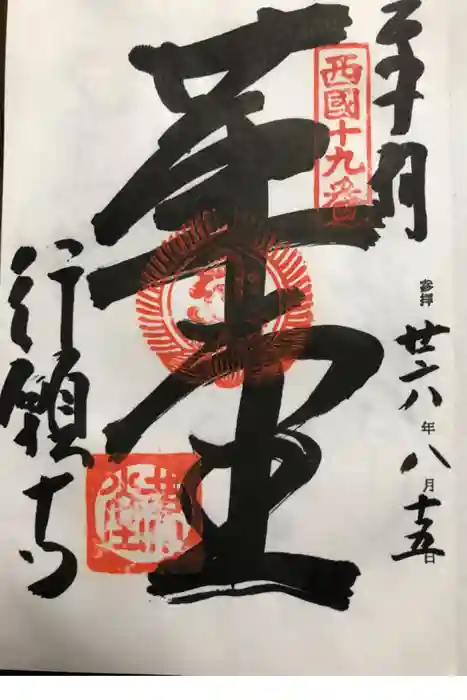 奉拝
西國十九番
參拝 廿八年八月十五日
革堂
行願寺